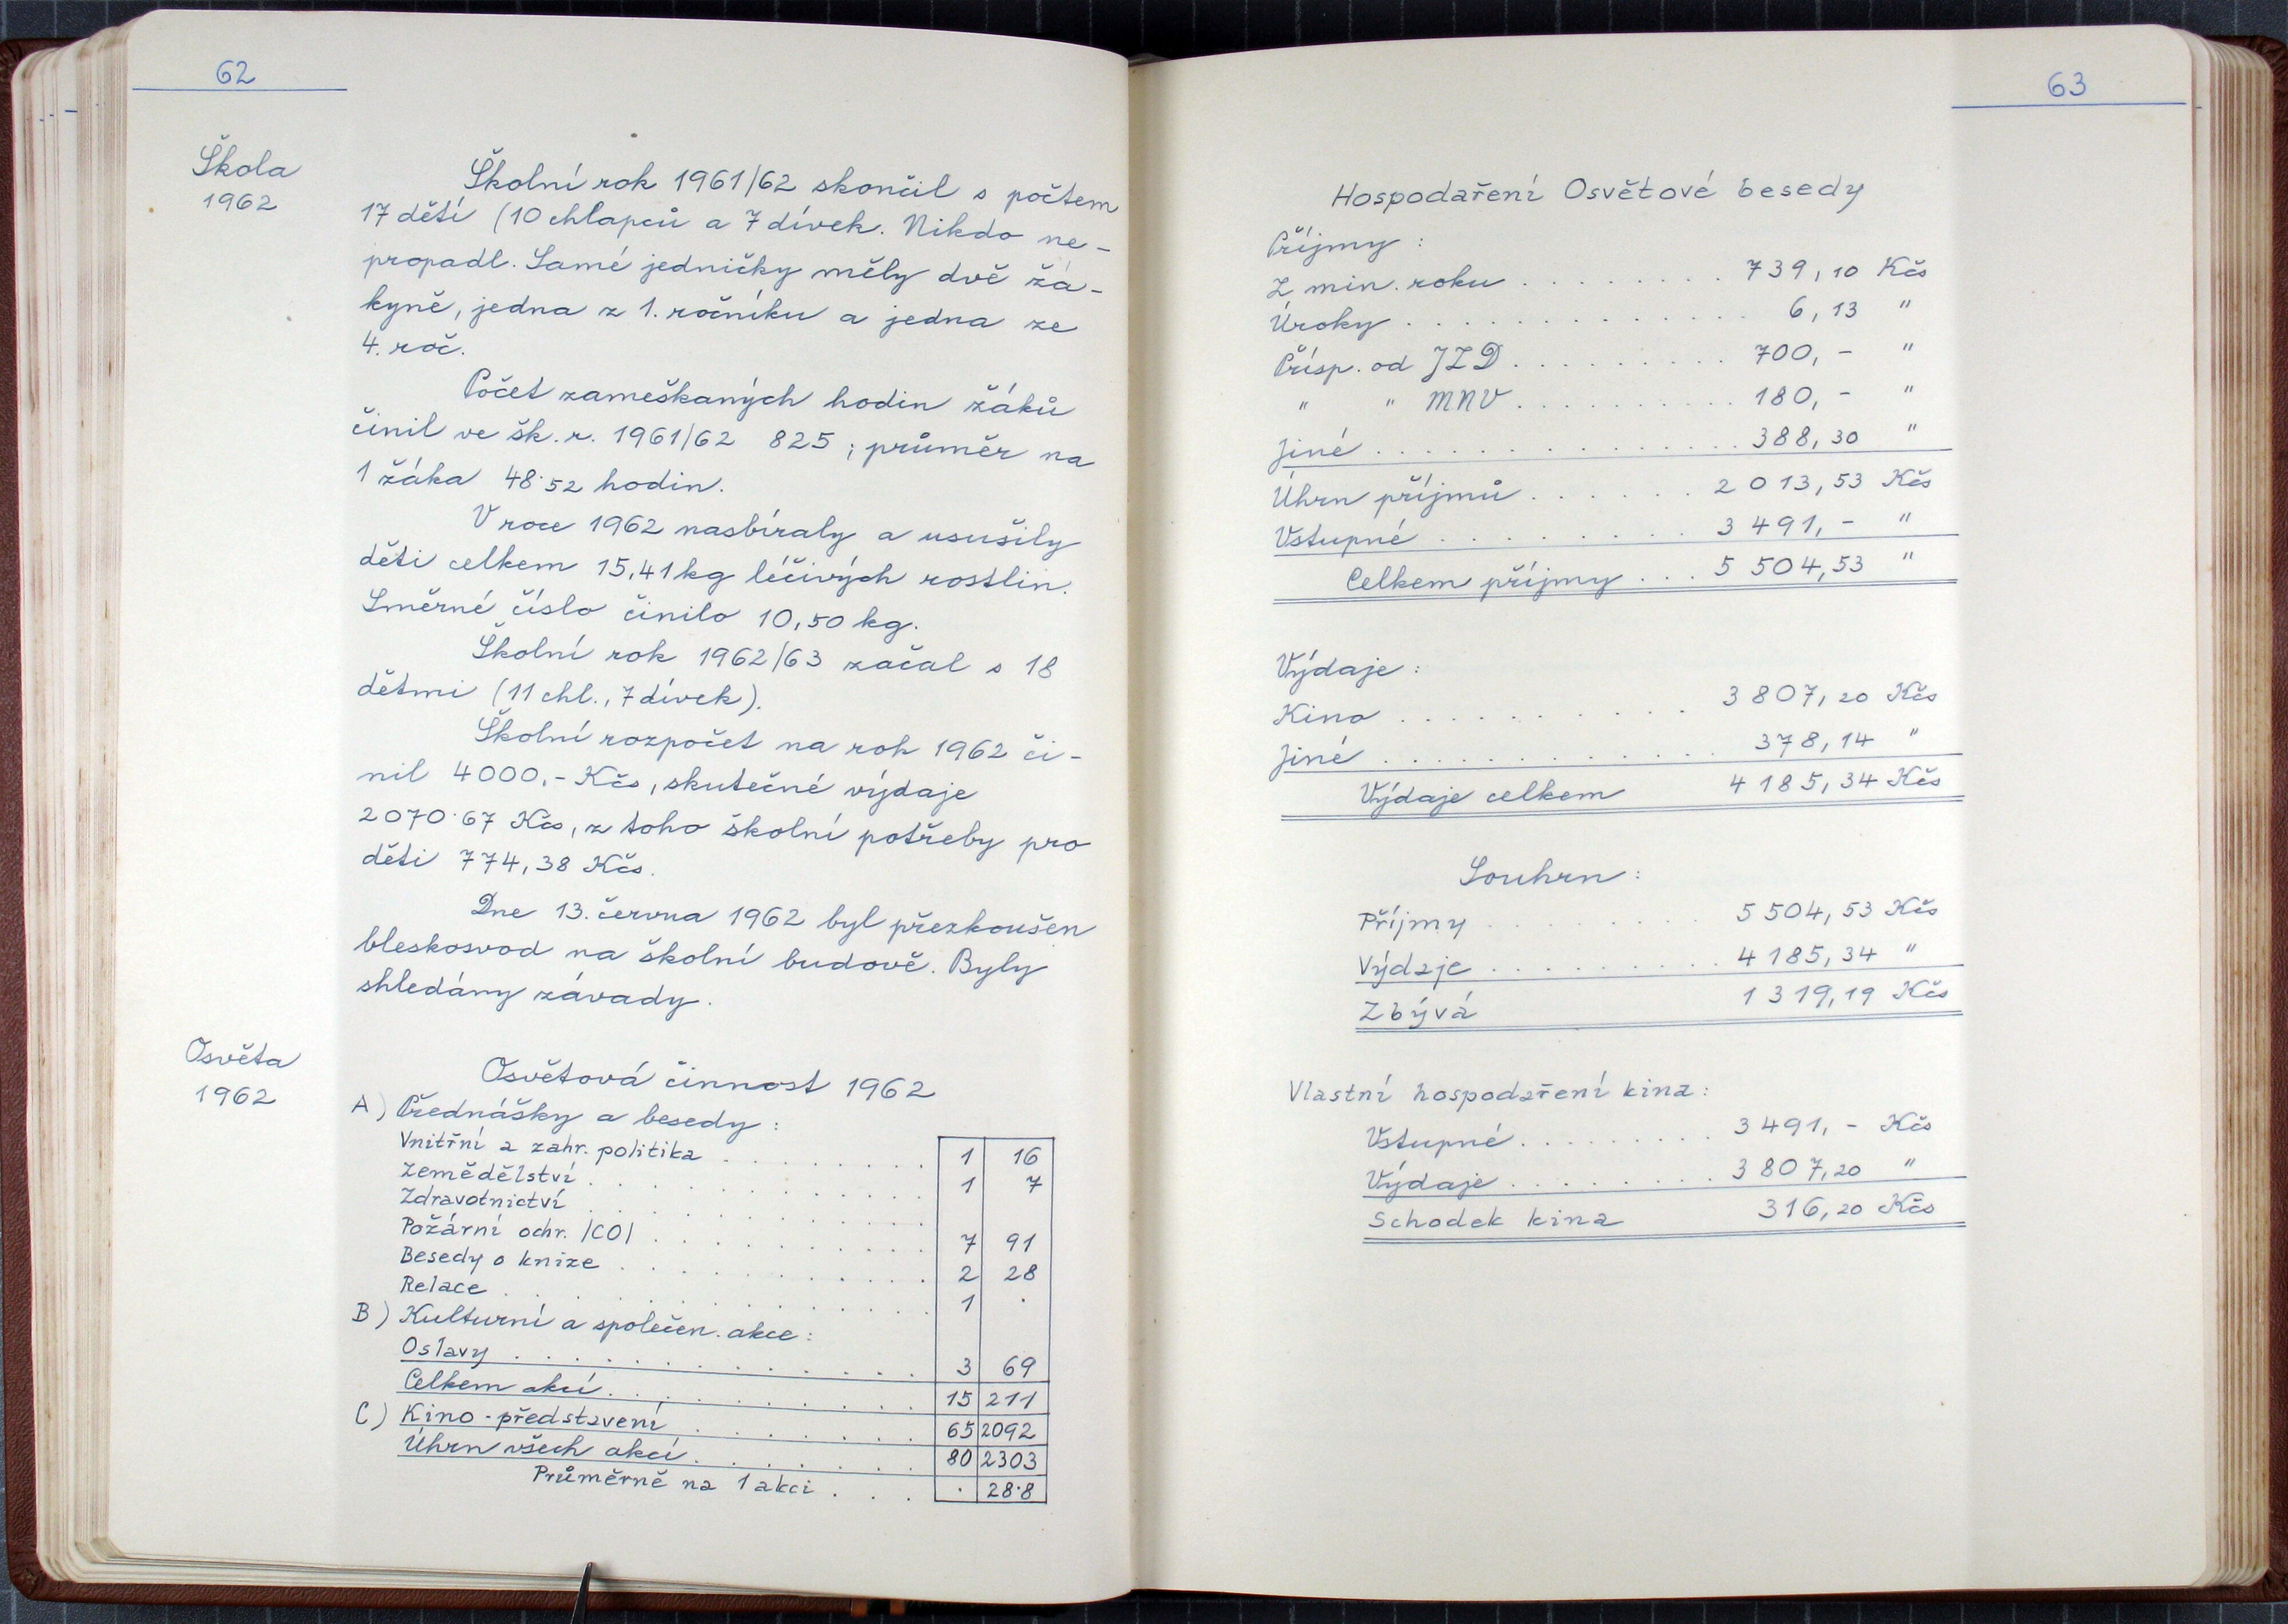 62
Škola
1962
Školní rok 1961/62 skončil s počtem
17 dětí (10 chlapců a 7 dívek. Nikdo ne-
propadl. Samé jedničky měly dvě žá-
kyně, jedna z 1. ročníku a jedna ze
4. roč.
Počet zameškaných hodin žáků
činil ve šk. r. 1961/62 825; průměr na
1 žáka 48·52 hodin.
V roce 1962 nasbíraly a usušily
děti celkem 15,41 kg léčivých rostlin.
Směrné číslo činilo 10,50 kg.
Školní rok 1962/63 začal s 18
dětmi (11 chl., 7 dívek).
Školní rozpočet na rok 1962 či-
nil 4000,- Kčs, skutečné výdaje
2070·67 Kčs, z toho školní potřeby pro
děti 774,38 Kčs.
Dne 13. června 1962 byl přezkoušen
bleskosvod na školní budově. Byly
shledány závady.
Osvěta
1962
Osvětová činnost 1962
A) Přednášky a besedy:
Vnitřní a zahr. politika . . . . . . . . 1 16
Zemědělství . . . . . . . . . . . . 1 7
Zdravotnictví . . . . . . . . . . . .
Požární ochr. /CO/ . . . . . . . . . . 7 91
Besedy o knize . . . . . . . . . . . 2 28
Relace . . . . . . . . . . . . . . . 1 .
B) Kulturní a společen. akce:
Oslavy . . . . . . . . . . . . . . 3 69
Celkem akcí . . . . . . . . . . . 15 211
C) Kino - představení . . . . . . . . 65 2092
Úhrn všech akcí . . . . . . . . 80 2303
Průměrně na 1 akci . . . . 28·8
63
Hospodaření Osvětové besedy
Příjmy:
Z min. roku . . . . . . . . 739,10 Kčs
Úroky . . . . . . . . . . . . . . 6,13 "
Přísp. od JZD . . . . . . . . . . 700,- "
" " MNV . . . . . . . . . . 180,- "
Jiné . . . . . . . . . . . . . . . . 388,30 "
Úhrn příjmů . . . . . . . 2 013,53 Kčs
Vstupné . . . . . . . . . 3 491,- "
Celkem příjmy . . . 5 504,53 "
Výdaje:
Kino . . . . . . . . . . . 3 807,20 Kčs
Jiné . . . . . . . . . . . . . 378,14 "
Výdaje celkem 4 185,34 Kčs
Souhrn:
Příjmy . . . . . . . . 5 504,53 Kčs
Výdaje . . . . . . . . . 4 185,34 "
Zbývá 1 319,19 Kčs
Vlastní hospodaření kina:
Vstupné . . . . . . . . . 3 491,- Kčs
Výdaje . . . . . . . . . 3 807,20 "
Schodek kina 316,20 Kčs